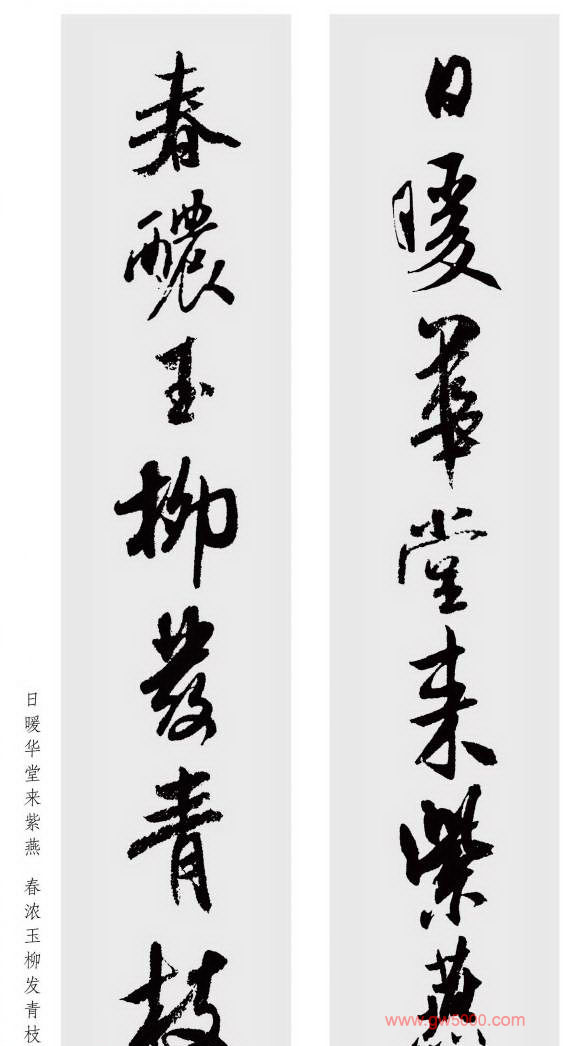 日暖華堂来紫燕
春醲玉柳發青枝
日暖华堂来紫燕 春浓玉柳发青枝
www.gw5000.com